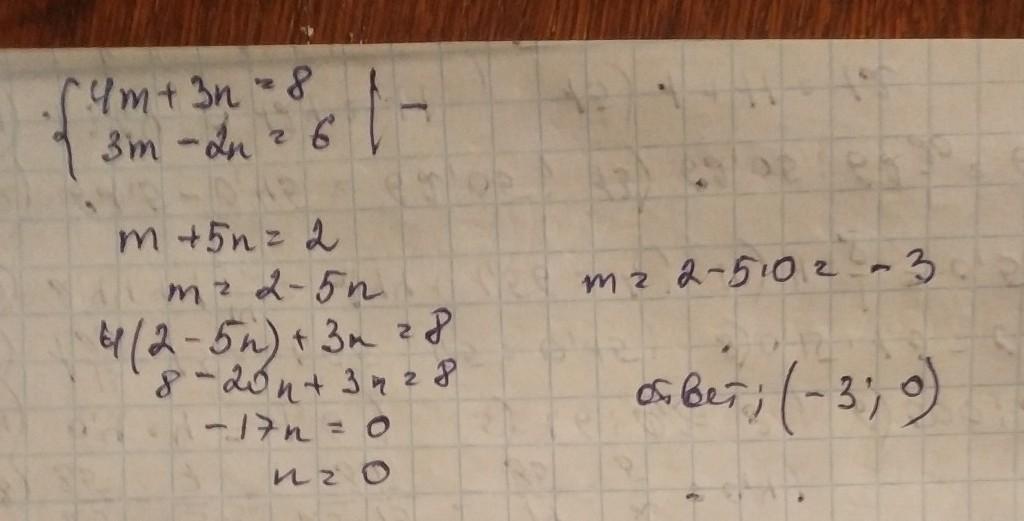 4m + 3n = 8 | -
3m - 2n = 6
m + 5n = 2
m = 2 - 5n
4(2 - 5n) + 3n = 8
8 - 20n + 3n = 8
-17n = 0
n = 0
m = 2 - 5·0 = -3
ответ; (-3; 0)